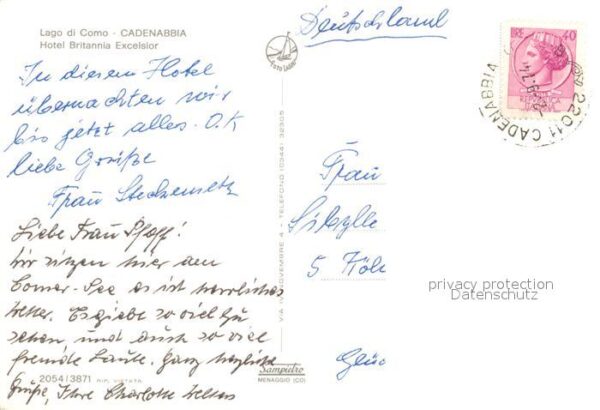 Lago di Como - CADENABBIA
Hotel Britannia Excelsior
In diesem Hotel
übernachten wir
bis jetzt alles. O.K
liebe Grüße
Frau
Liebe Frau Pfaff!
Wir sitzen hier am
Comer-See es ist herrliches
Wetter. Es giebt so viel zu
sehen, und auch so viel
fremde Leute. Ganz herzliche
Grüße, Ihre Charlotte
2054/3871 RIP. VIETATA
FOTO LASER
VIA IV NOVEMBRE 4 - TELEFONO (0344) 32305
Sampietro
MENAGGIO (CO)
Deutschland
40
22011 CADENABBIA
Frau
Sibylle
5 Köln
privacy protection
Datenschutz